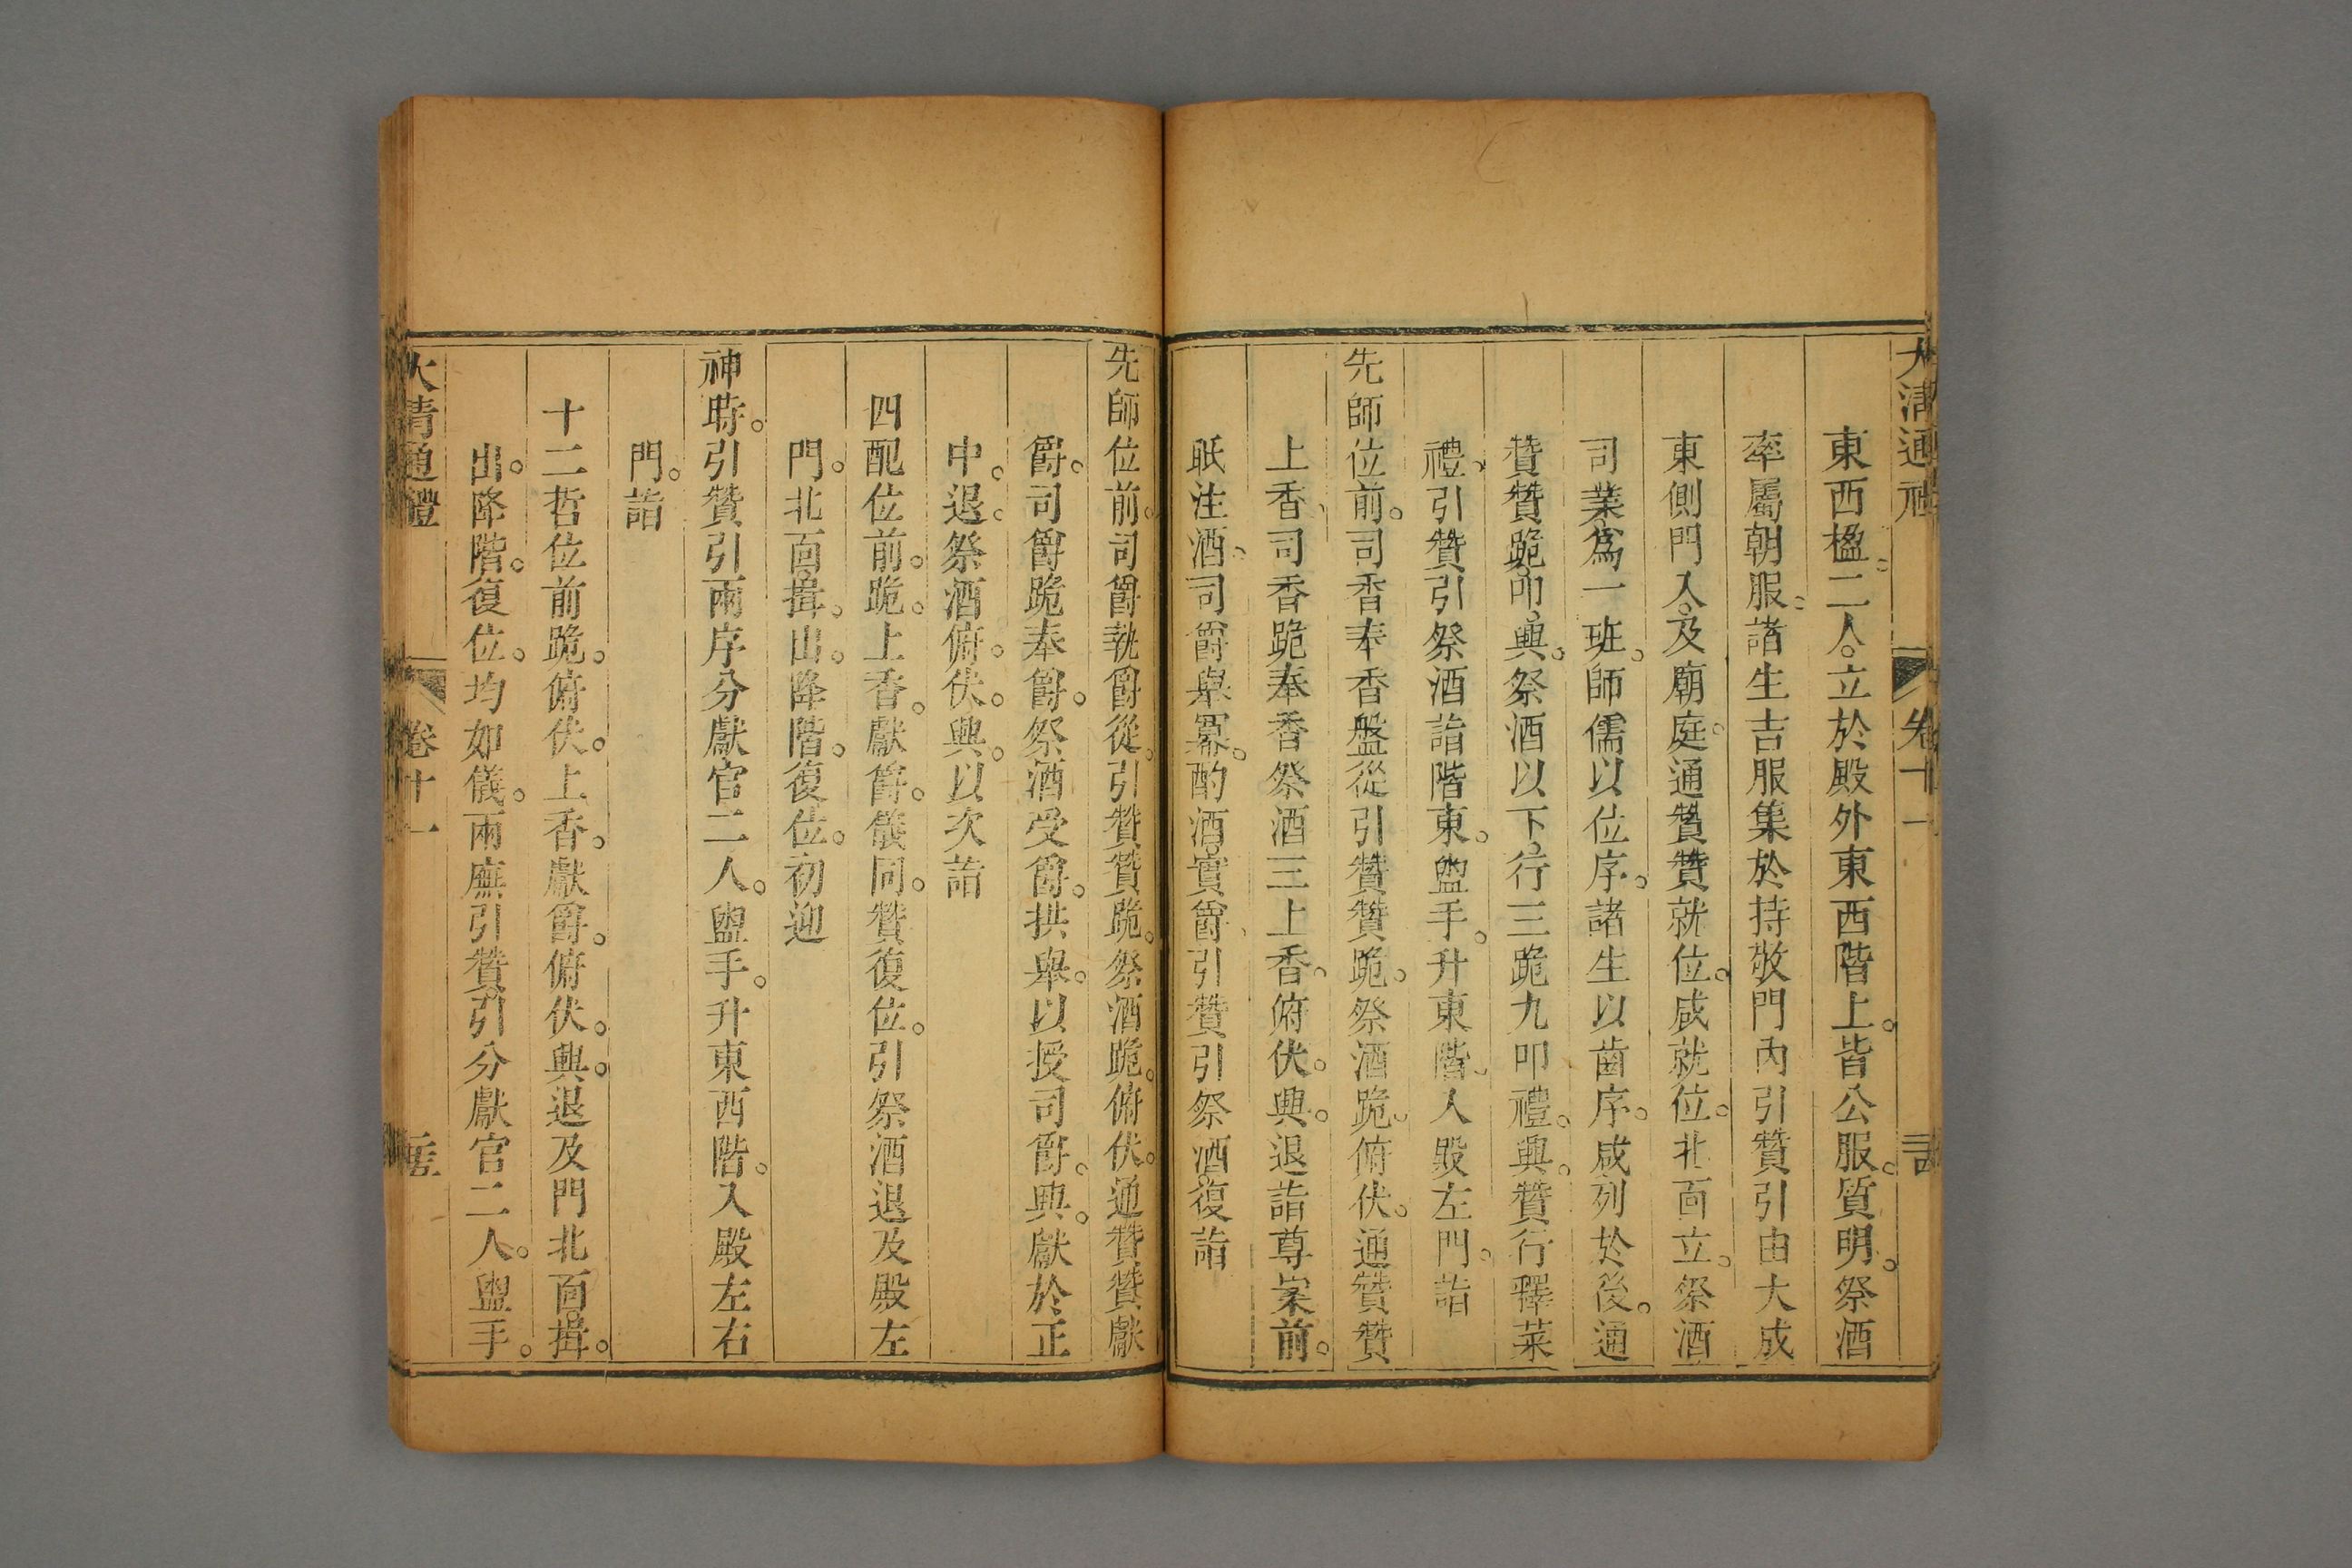 大清通禮 卷十一
東西楹。二人。立於殿外東西階上。皆公服。質明。祭酒
率屬朝服。諸生吉服集於持敬門內引贊引由大成
東側門入。及廟庭。通贊贊就位。咸就位。北面立。祭酒
司業。爲一班。師儒以位序。諸生以齒序。咸列於後。通
贊贊跪。叩。興。祭酒以下。行三跪九叩禮。興。贊行釋菜
禮。引贊引祭酒詣階東。盥手。升東階。入殿左門。詣
先師位前。司香奉香盤從引贊贊跪。祭酒跪。俯伏。通贊贊
上香。司香跪奉香祭酒三上香。俯伏。興。退詣尊案前。
眂注酒。司爵舉冪。酌酒。實爵。引贊引祭酒。復詣
先師位前。司爵執爵從。引贊贊跪。祭酒跪。俯伏。通贊贊獻
爵。司爵跪奉爵。祭酒受爵。拱舉。以授司爵。興。獻於正
中。退。祭酒俯。伏。興。以次詣
四配位前。跪。上香。獻爵。儀同。贊復位。引祭酒退及殿左
門。北面。揖。出。降階。復位。初迎
神時。引贊引兩序分獻官二人。盥手。升東西階。入殿左右
門。詣
十二哲位前跪。俯伏。上香。獻爵。俯伏。興。退及門北面。揖。
出。降階。復位。均如儀。兩廡引贊。引分獻官二人。盥手。
大清通禮 卷十一